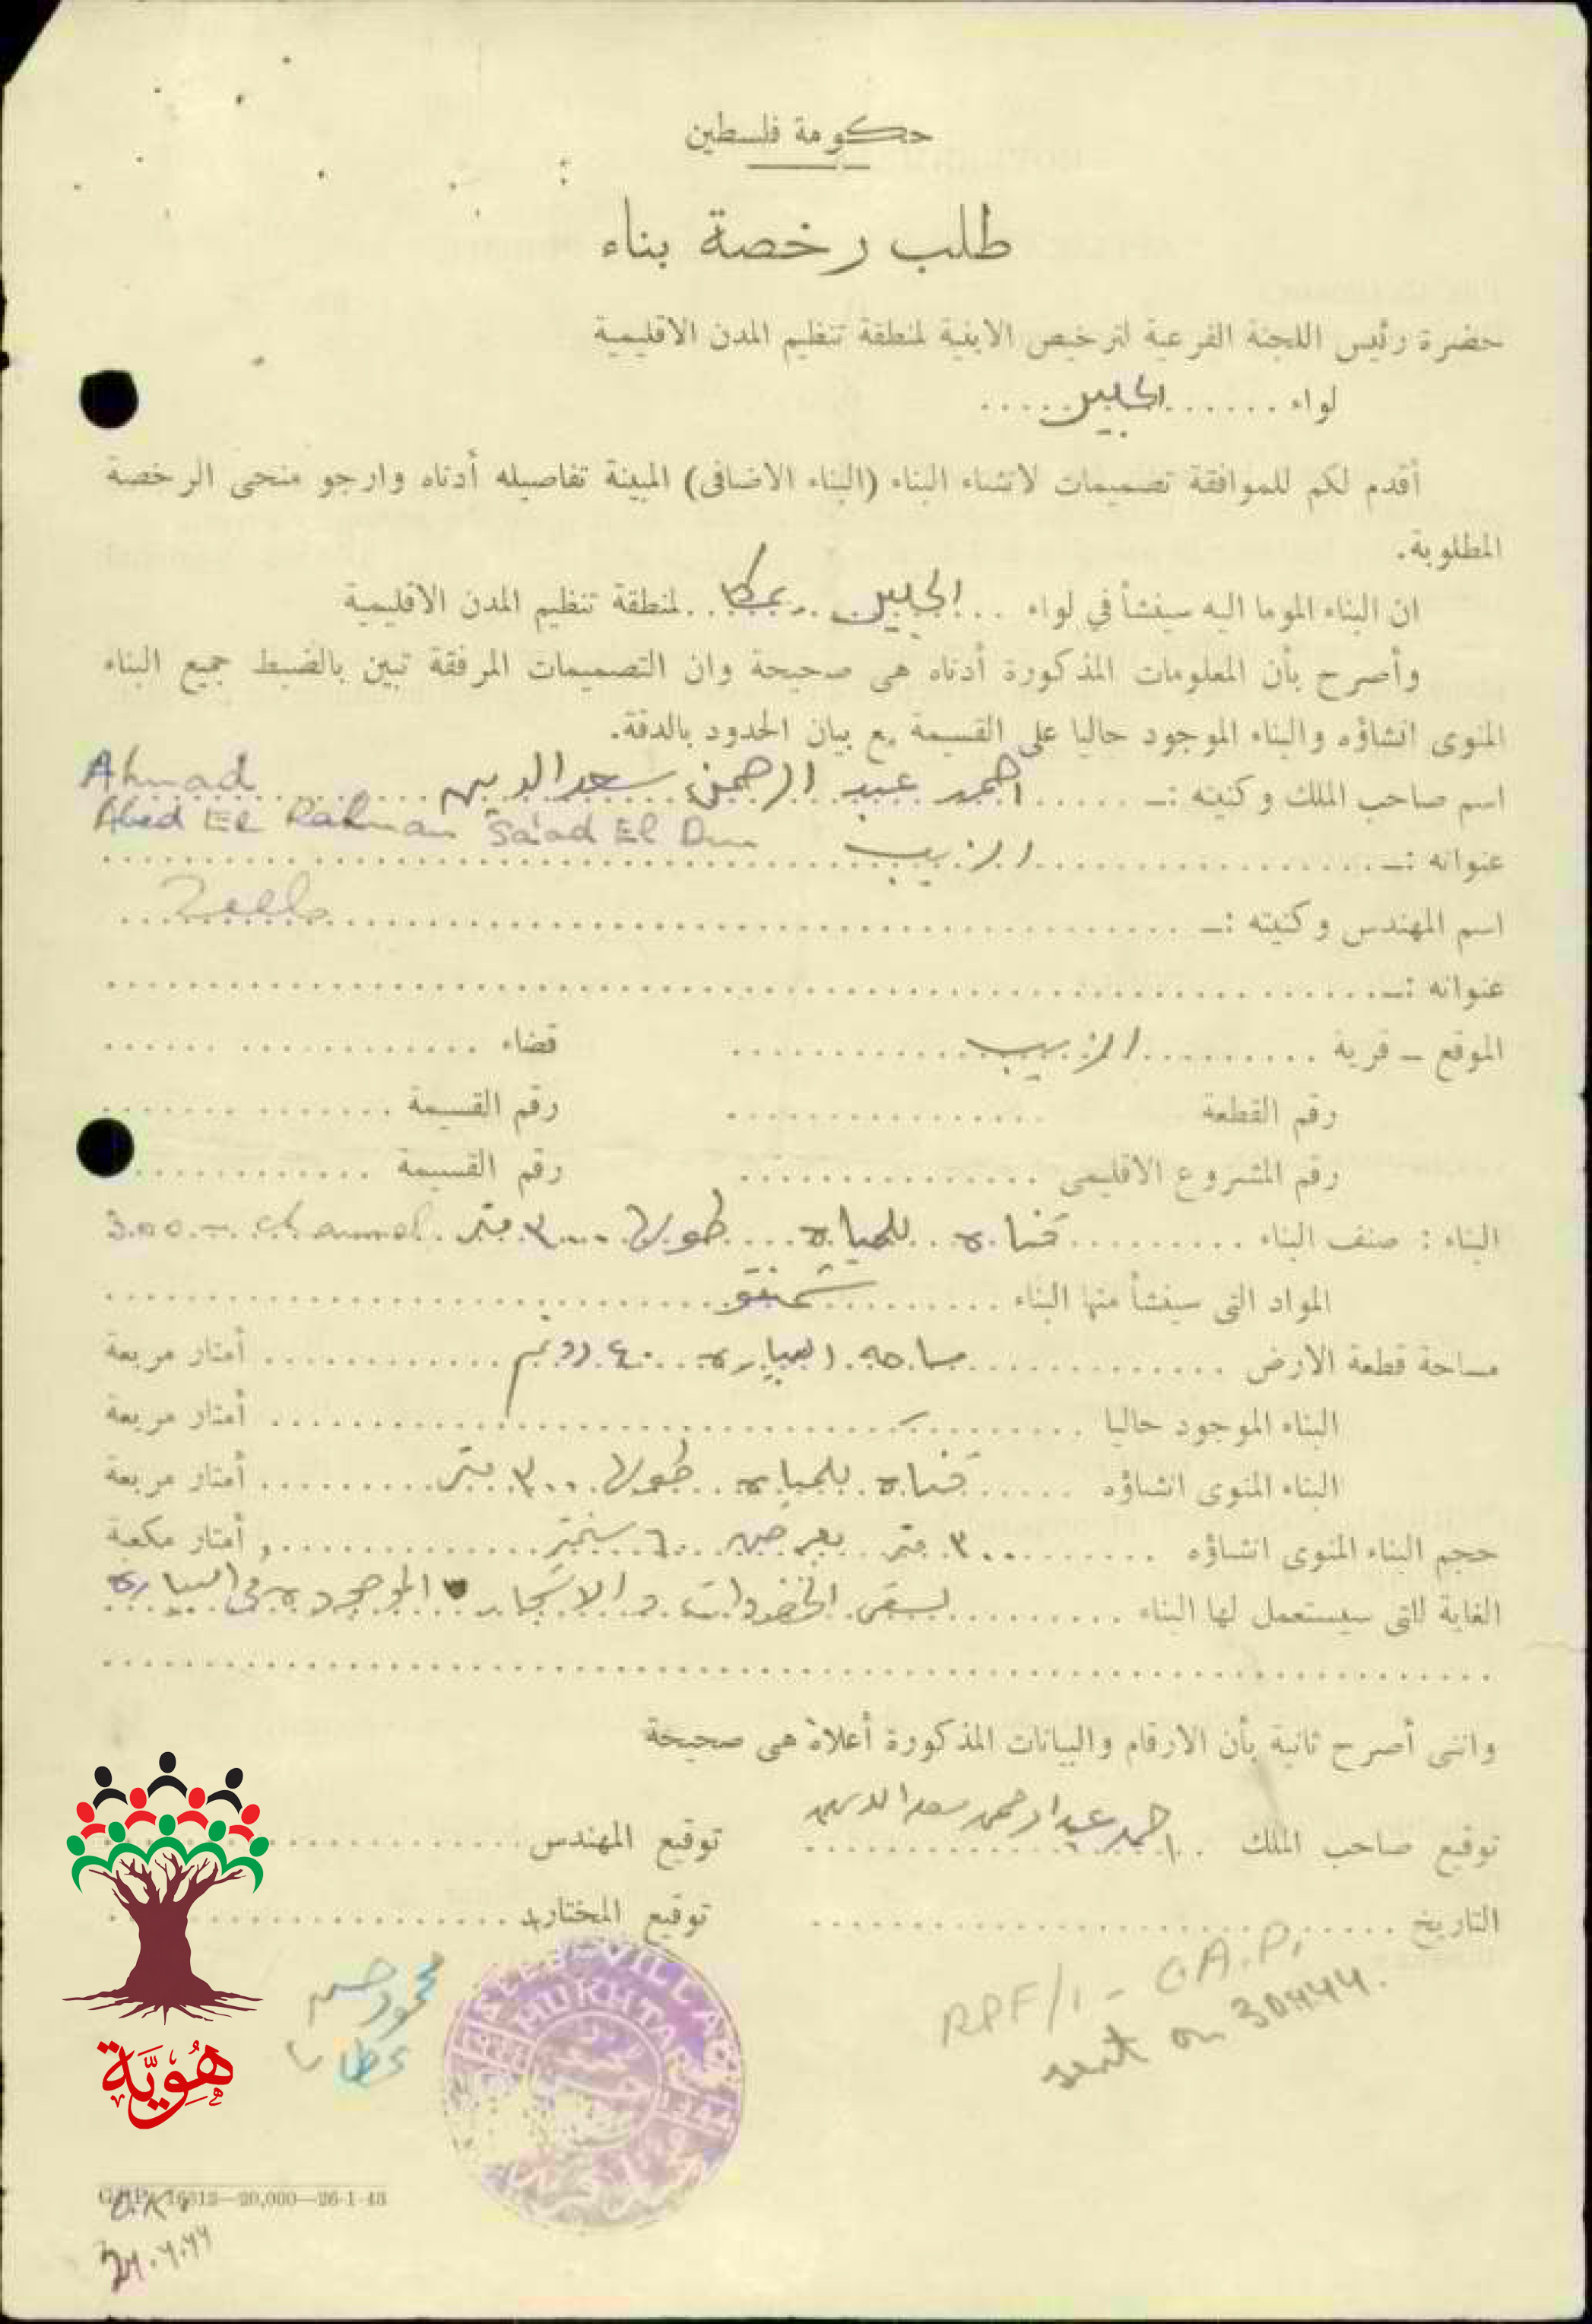 حكومة فلسطين
طلب رخصة بناء
حضرة رئيس اللجنة الفرعية لترخيص الابنية لمنطقة تنظيم المدن الاقليمية
لواء ...... الجليل .....
أقدم لكم للموافقة تصميمات لانشاء البناء (البناء الاضافى) المبينة تفاصيله أدناه وارجو منحى الرخصة
المطلوبة.
ان البناء الموما اليه سينشأ في لواء .. الجليل .. بعكا .. لمنطقة تنظيم المدن الاقليمية
وأصرح بأن المعلومات المذكورة أدناه هى صحيحة وان التصميمات المرفقة تبين بالضبط جميع البناء
المنوى انشاؤه والبناء الموجود حاليا على القسيمة مع بيان الحدود بالدقة.
اسم صاحب الملك وكنيته :ــ ...... احمد عبد الرحمن سعد الدين ...... Ahmad
Abed El Rahman Sa'ad El Din
عنوانه :ــ ...... الزيب ......
Zeeb
اسم المهندس وكنيته :ــ ......
عنوانه :ــ ......
الموقع ــ قرية ...... الزيب ...... قضاء ......
رقم القطعة ...... رقم القسيمة ......
رقم المشروع الاقليمى ...... رقم القسيمة ......
البناء : صنف البناء ...... قناه للمياه .... طولها ٣٠٠ متر 300 - channel
المواد التى سينشأ منها البناء ...... شمنتو ......
مساحة قطعة الارض ...... مساحه البياره ٤٠ دونم ...... أمتار مربعة
البناء الموجود حاليا ...... أمتار مربعة
البناء المنوى انشاؤه ...... قناه للمياه طولها ٣٠٠ متر ...... أمتار مربعة
حجم البناء المنوى انشاؤه ...... ٣٠٠ متر بعرض ٦٠ سنتمتر ...... أمتار مكعبة
الغاية التى سيستعمل لها البناء ...... لسقى الخضروات والاشجار الموجوده في البياره
وانى أصرح ثانية بأن الارقام والبيانات المذكورة أعلاه هى صحيحة
توقيع صاحب الملك .. احمد عبد الرحمن سعد الدين
توقيع المهندس ......
التاريخ ......
توقيع المختار ......
محمود حسن
عطايا
VILLAGE
MUKHTAR
RPF/1 - GA.P.
sent on 30444.
16312—20,000—26-1-43
O.K.
24.4.44
هُوِيَّة